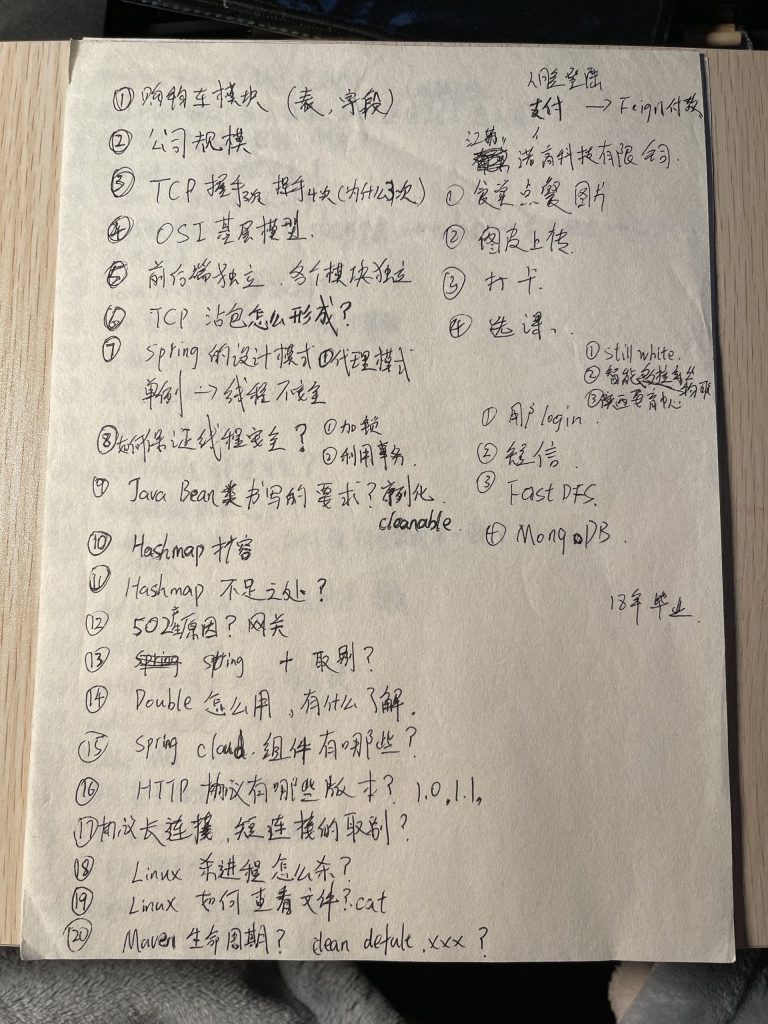 ① 购物车模块 (表、字段)
② 公司规模
③ TCP 握手3次 挥手4次(为什么3次)
④ OSI 基层模型.
⑤ 前后端独立, 各个模块独立
⑥ TCP 沾包怎么形成?
⑦ Spring 的设计模式 ①代理模式
单例 → 线程不安全
⑧ 如何保证线程安全? ① 加锁
② 利用事务.
⑨ Java Bean类书写的要求? 序列化
cleanable.
⑩ Hashmap 扩容
⑪ Hashmap 不足之处?
⑫ 502 原因? 网关
⑬ spring +
⑭ Double 怎么用, 有什么了解.
⑮ spring cloud 组件有哪些?
⑯ HTTP 协议有哪些版本? 1.0, 1.1,
⑰ 协议长连接, 短连接的取别?
⑱ Linux 杀进程怎么杀?
⑲ Linux 如何查看文件? cat
⑳ Maven 生命周期? clean defult .xxx ?
人脸登陆
支付 → Feign付款
江苏
诺高科技有限公司.
① 食堂点餐 图片
② 图皮上传
③ 打卡.
④ 选课、
① still white.
② 智能
③ 陕西 中心
① 用户login.
② 短信.
③ FastDFS.
④ MongoDB.
18年毕业.